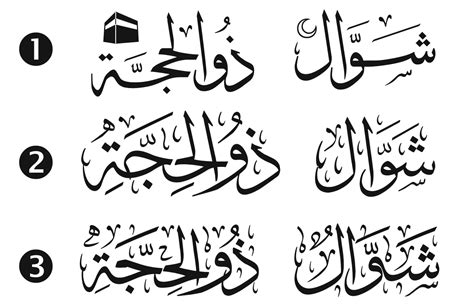 1 شوّال ذو الحجة
2 شَوَّال ذُو الحِجَّةِ
3 شَوَّالُ ذُو الحِجَّةِ